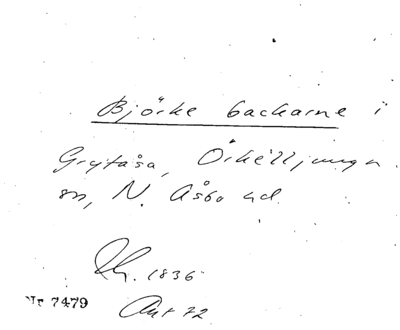 Björke backarne i
Grytåsa, Örkelljunga
sn, N. Åsbo hd.
1836
Nr 7479